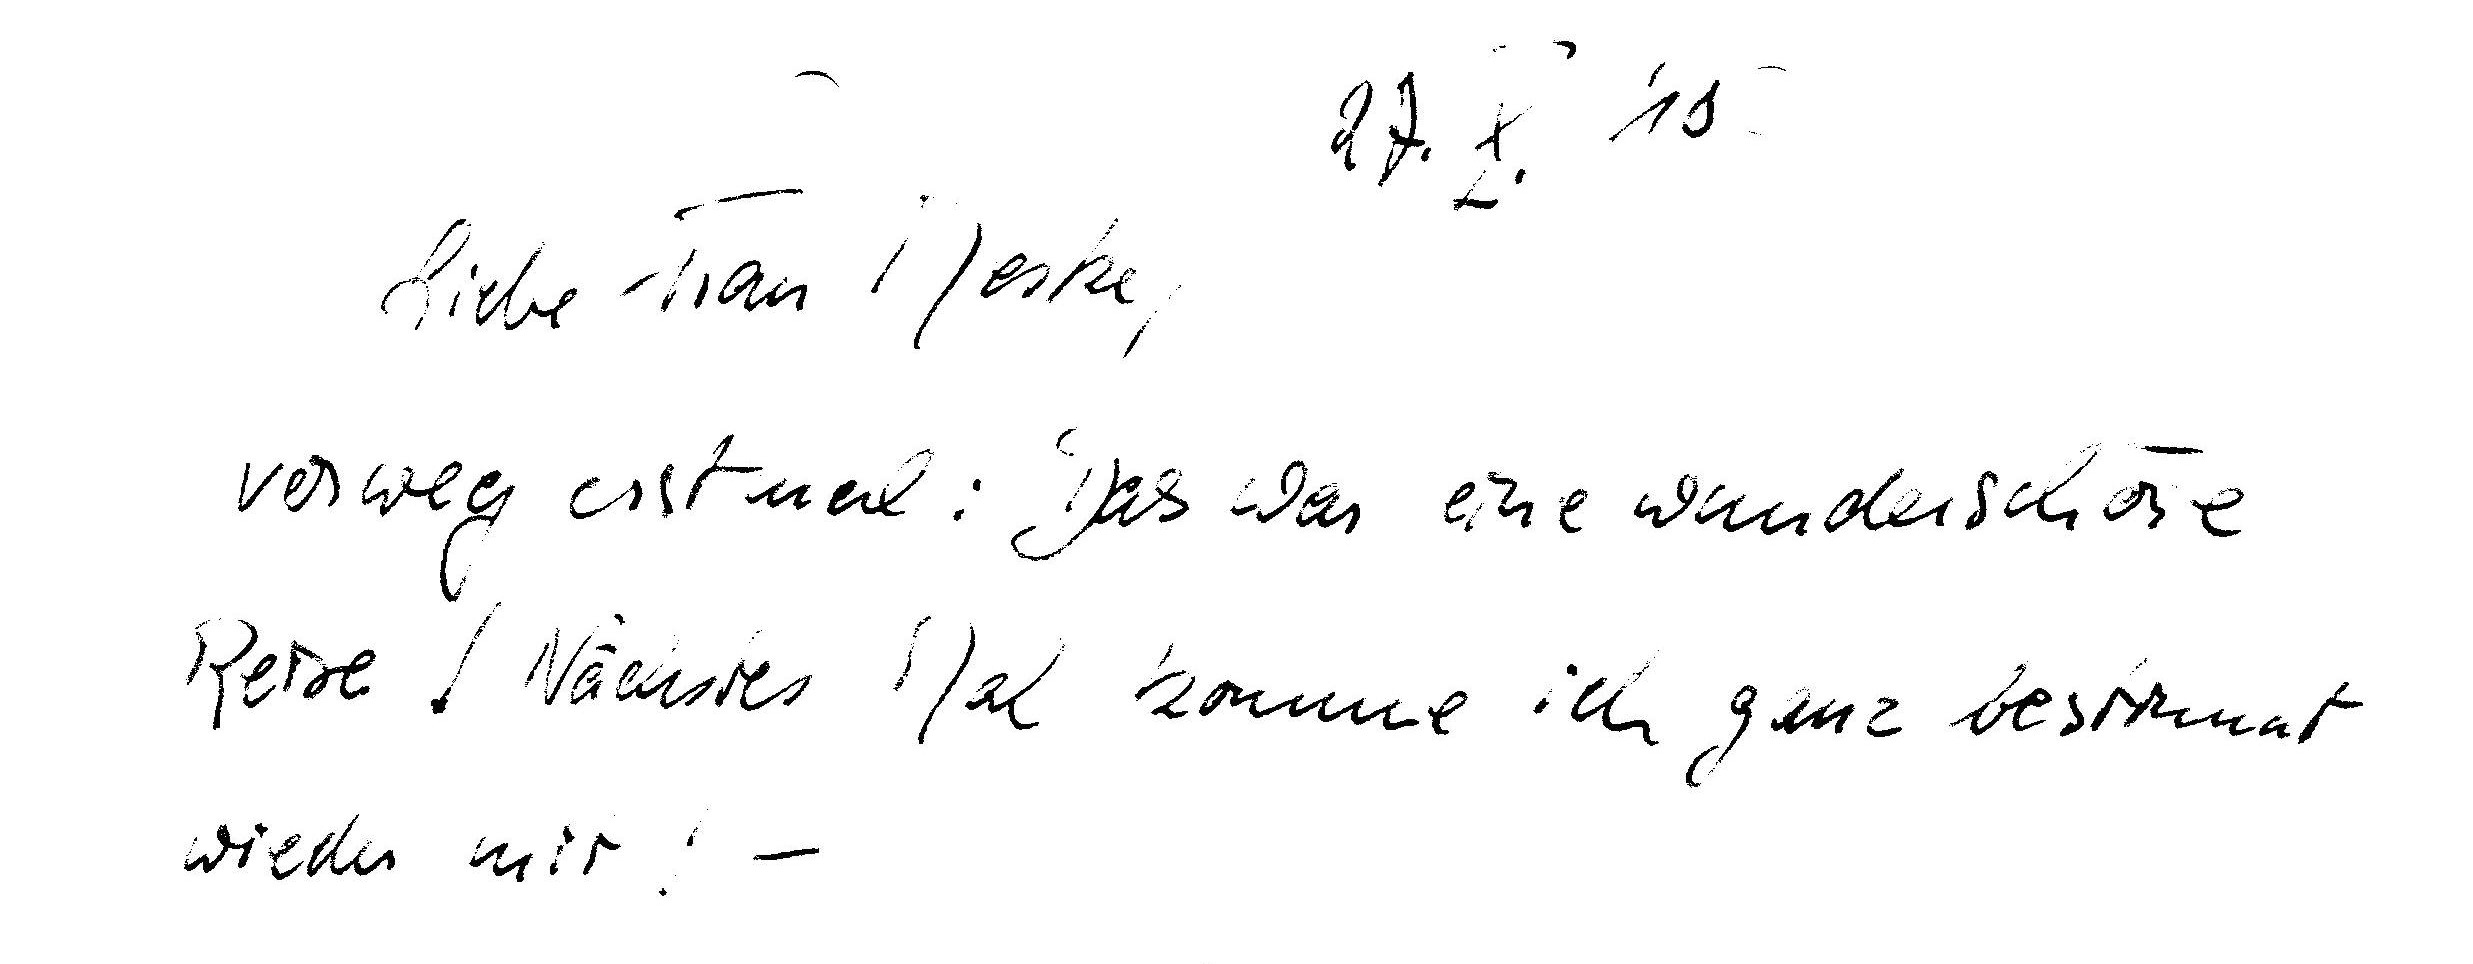 27. X. '15
Liebe Frau Meske,
vorweg erstmal: Das war eine wunderschöne
Reise! Nächstes Mal komme ich ganz bestimmt
wieder mit! –